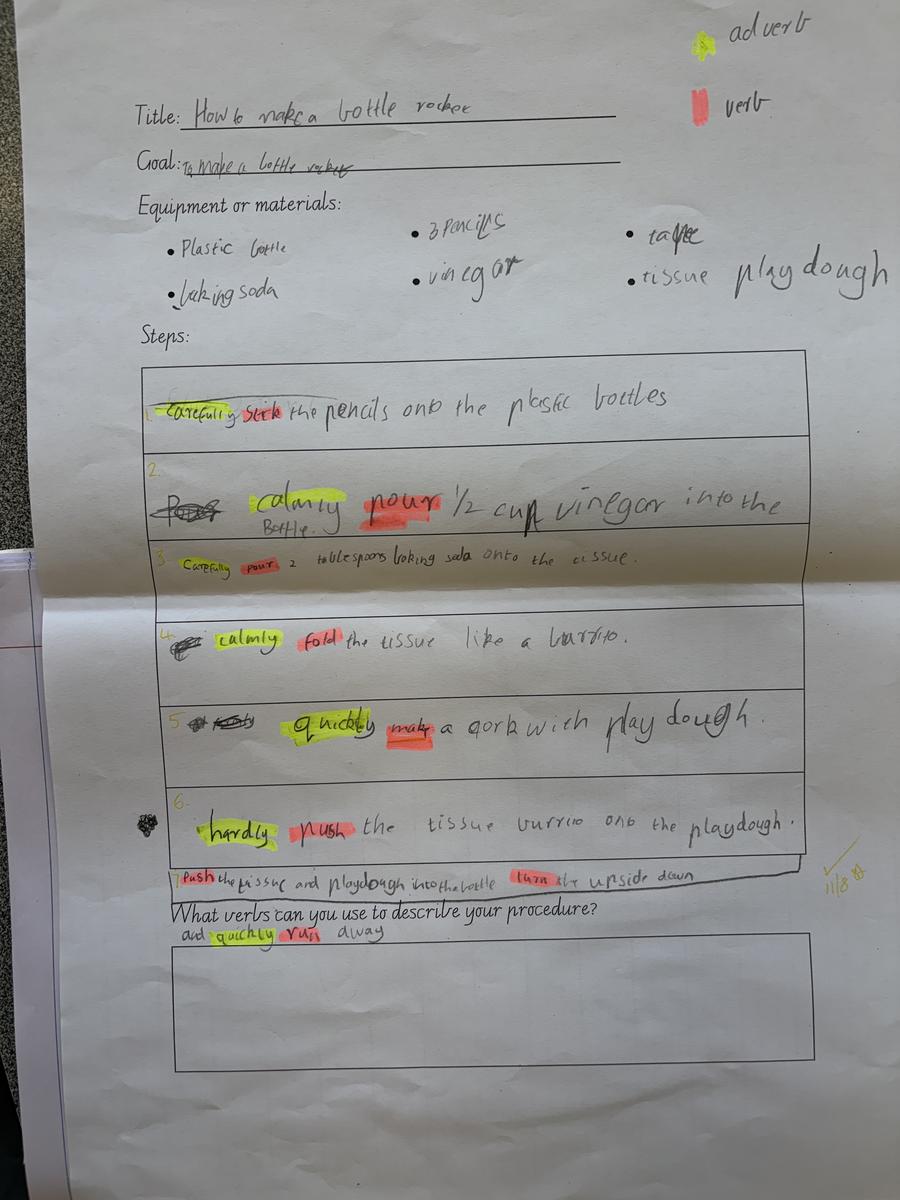 adverb
verb
Title: How to make a bottle rocket
Goal: To make a bottle rocket
Equipment or materials:
• Plastic bottle • 3 Pencils • tape
• baking soda • vinegar • tissue playdough
Steps:
1. Carefully stick the pencils onto the plastic bottles
2.
calmly pour 1/2 cup vinegar into the
Bottle.
3. Carefully pour 2 tablespoons baking soda onto the tissue.
4. calmly fold the tissue like a burrito.
5 quickly make a qork with play dough.
6.
hardly push the tissue burrito onto the playdough.
7 Push the tissue and playdough into the bottle turn the upside down
What verbs can you use to describe your procedure?
and quickly run away
11/8